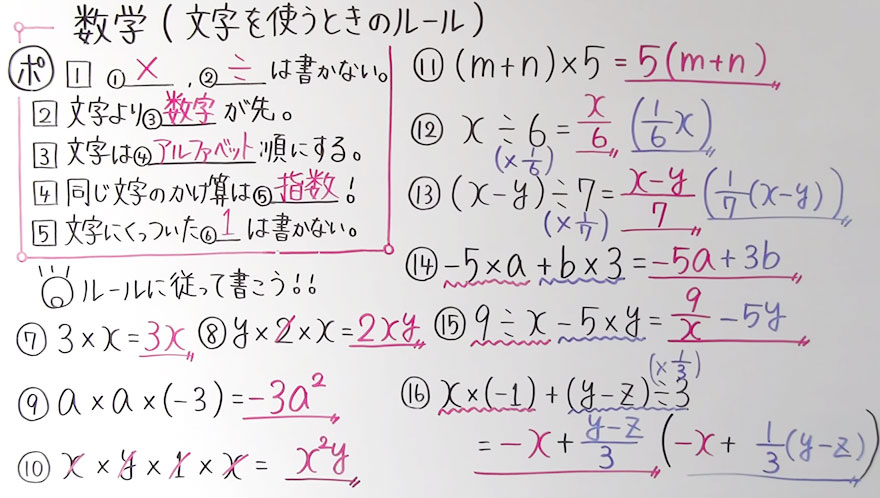 数学(文字を使うときのルール)
ポ 1 ①×, ②÷ は書かない。
2 文字より③数字が先。
3 文字は④アルファベット順にする。
4 同じ文字のかけ算は⑤指数!
5 文字にくっついた⑥1は書かない。
ルールに従って書こう!!
⑦ 3×x=3x ⑧ y×2×x=2xy
⑨ a×a×(-3)=-3a²
⑩ x×y×1×x= x²y
⑪ (m+n)×5=5(m+n)
⑫ x÷6=x/6 (1/6 x)
(×1/6)
⑬ (x-y)÷7=x-y/7 (1/7(x-y))
(×1/7)
⑭ -5×a+b×3=-5a+3b
⑮ 9÷x-5×y=9/x-5y
(×1/3)
⑯ x×(-1)+(y-z)÷3
=-x+y-z/3 (-x+1/3(y-z))